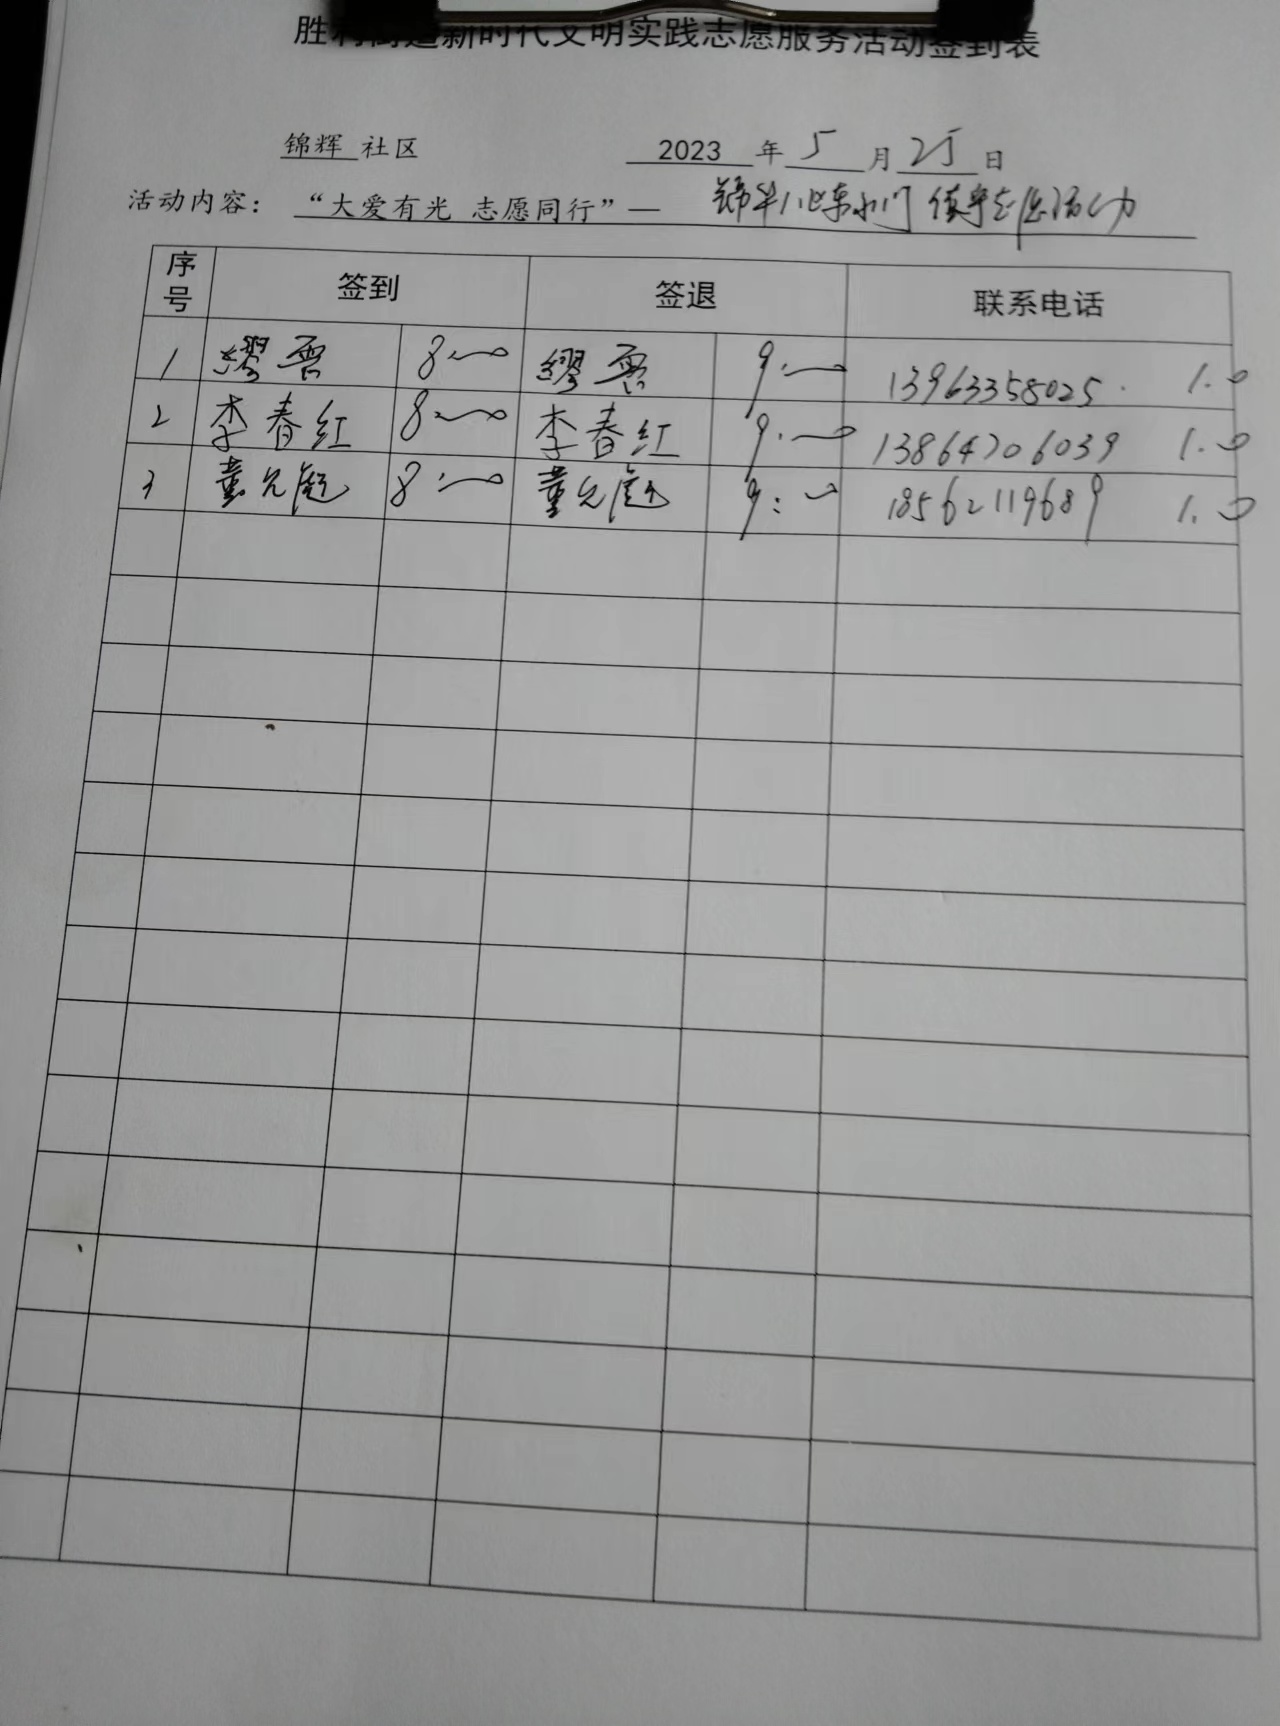 胜利街道新时代文明实践志愿服务活动签到表
锦辉 社区 2023 年 5 月 25 日
活动内容： “大爱有光 志愿同行”— 锦华八区东小门 值守志愿活动
序号 签到 签退 联系电话
1 缪雪 8:00 缪雪 9:00 13963358025. 1.0
2 李春红 8:00 李春红 9:00 13864706039 1.0
3 董 8:00 董 9:00 18562119689 1.0